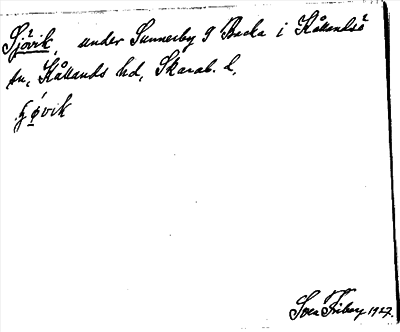 Sjövik, under Sunnerby o Backa i Kållandsö
sn, Kållands hd, Skarab. l.
ʃǿvik
Sven Friberg 1927.